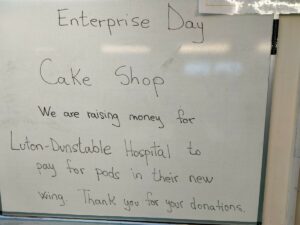 Enterprise Day
Cake Shop
We are raising money for
Luton-Dunstable Hospital to
pay for pods in their new
wing. Thank you for your donations.